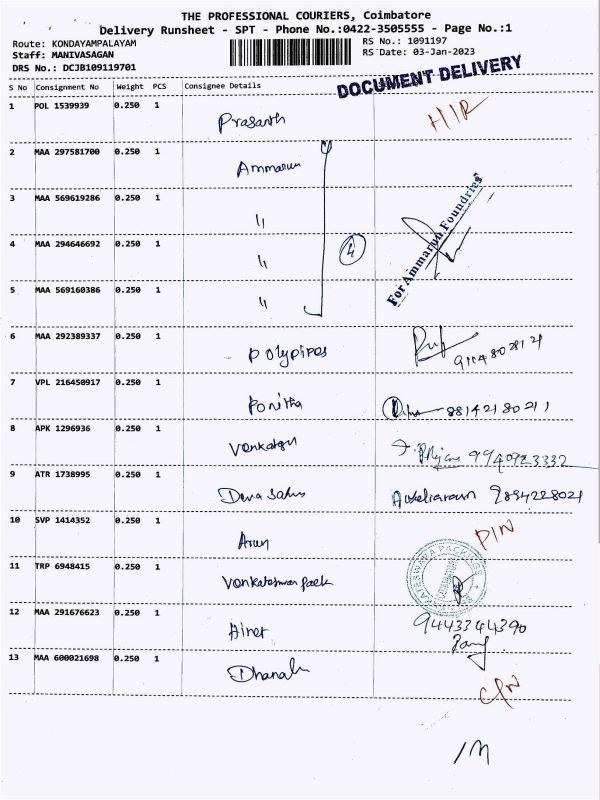 THE PROFESSIONAL COURIERS, Coimbatore
Delivery Runsheet - SPT - Phone No.:0422-3505555 - Page No.:1
Route: KONDAYAMPALAYAM
Staff: MANIVASAGAN
DRS No.: DCJB109119701
RS No.: 1091197
RS Date: 03-Jan-2023
DOCUMENT DELIVERY
S No Consignment No Weight PCS Consignee Details
1 POL 1539939 0.250 1 Prasanth
2 MAA 297581700 0.250 1 Ammarun
3 MAA 569619286 0.250 1 "
4 MAA 294646692 0.250 1 " 4
For Ammarun Foundries
5 MAA 569160386 0.250 1 "
6 MAA 292389337 0.250 1 Polypipes
7 VPL 216450917 0.250 1 Ponitha 88142180211
8 APK 1296936 0.250 1 Venkatgu 9940923332
9 ATR 1738995 0.250 1 9894228021
10 SVP 1414352 0.250 1 Arun PIN
11 TRP 6948415 0.250 1 Venkateshwar pack
12 MAA 291676623 0.250 1 9443344390
13 MAA 600021698 0.250 1 Dhanal